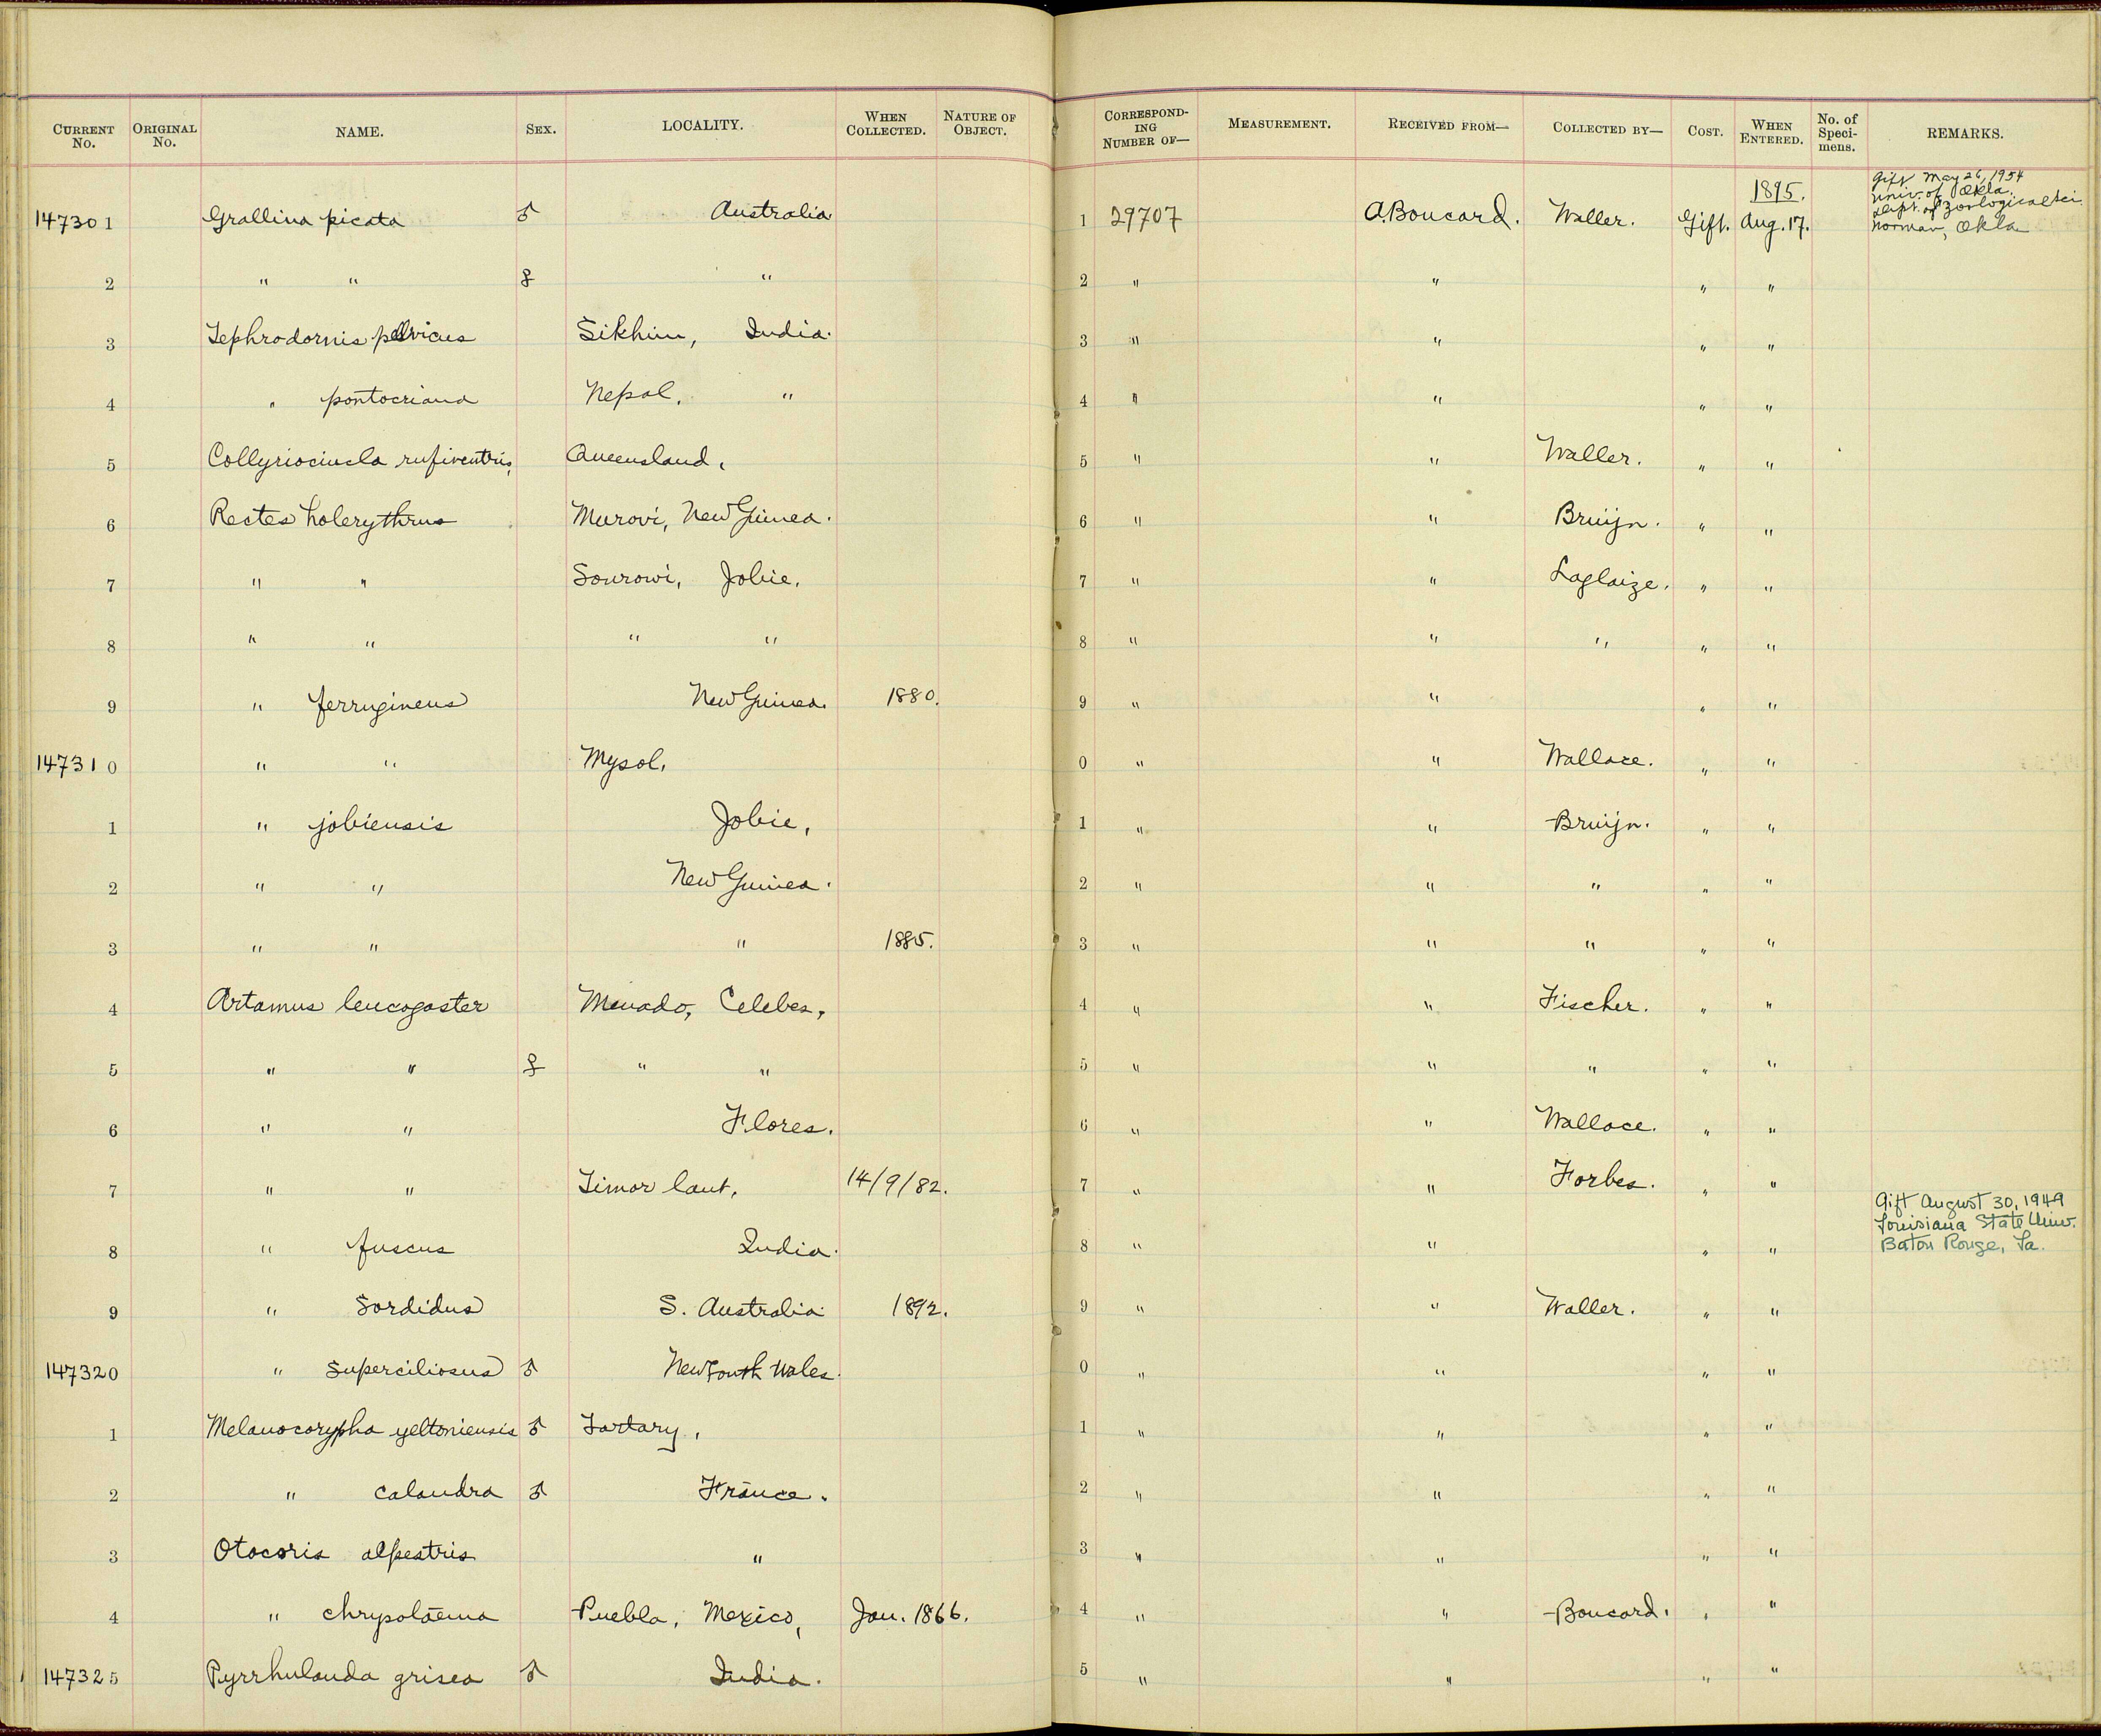 CURRENT No. ORIGINAL No. NAME. SEX. LOCALITY. WHEN COLLECTED. NATURE OF OBJECT. CORRESPOND-ING NUMBER OF— MEASUREMENT. RECEIVED FROM— COLLECTED BY— COST. WHEN ENTERED. No. of Speci-mens. REMARKS.
147301 Grallina picata ♂ Australia 1 29707 A. Boucard. Waller. Gift. 1895. Aug. 17. Gift May 26, 1954 Univ. of Okla. Dept. of Zoological Sci. Norman, Okla
2 " " ♀ " 2 " " " "
3 Tephrodornis pelvicus Sikhim, India. 3 " " " "
4 " pontoceriana Nepal, " 4 " " " "
5 Collyriocincla rufiventris, Queensland, 5 " " Waller. " "
6 Rectes holerythrus Murovi, New Guinea. 6 " " Bruijn. " "
7 " " Sourowi, Jobie, 7 " " Laglaize. " "
8 " " " " 8 " " " " "
9 " ferrugineus New Guinea. 1880. 9 " " " "
147310 " " Mysol, 0 " " Wallace. " "
1 " jobiensis Jobie, 1 " " Bruijn. " "
2 " " New Guinea. 2 " " " " "
3 " " " 1885. 3 " " " " "
4 Artamus leucogaster Menado, Celebes, 4 " " Fischer. " "
5 " " ♀ " " 5 " " " " "
6 " " Flores. 6 " " Wallace. " "
7 " " Timor laut, 14/9/82. 7 " " Forbes. " "
8 " fuscus India. 8 " " " " Gift August 30, 1949 Louisiana State Univ. Baton Rouge, La.
9 " sordidus S. Australia. 1892. 9 " " Waller. " "
147320 " superciliosus ♂ New South Wales. 0 " " " "
1 Melanocorypha yeltoniensis ♂ Tartary, 1 " " " "
2 " calandra ♂ France. 2 " " " "
3 Otocoris alpestris " 3 " " " "
4 " chrysolaema Puebla, Mexico, Jan. 1866. 4 " " Boucard. " "
147325 Pyrrhulauda grisea ♂ India. 5 " " " "